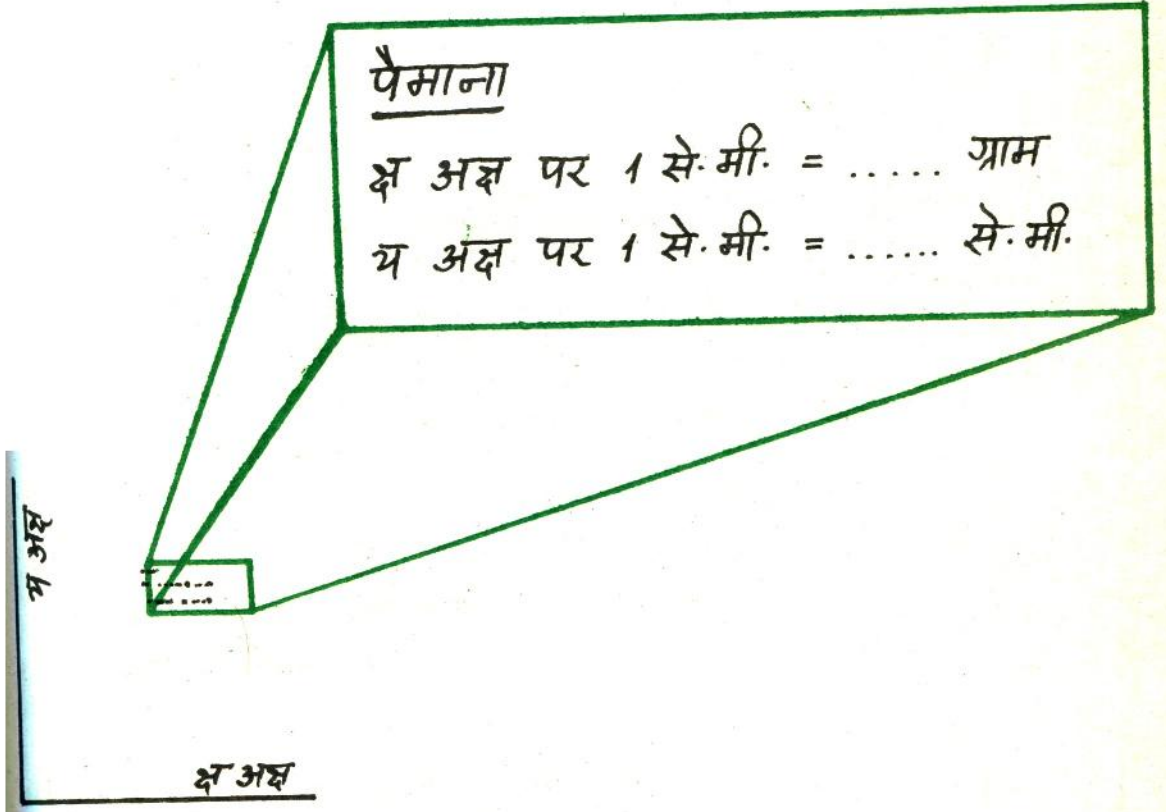 पैमाना
क्ष अक्ष पर 1 से.मी. = ..... ग्राम
य अक्ष पर 1 से.मी. = ...... से.मी.
य अक्ष
क्ष अक्ष